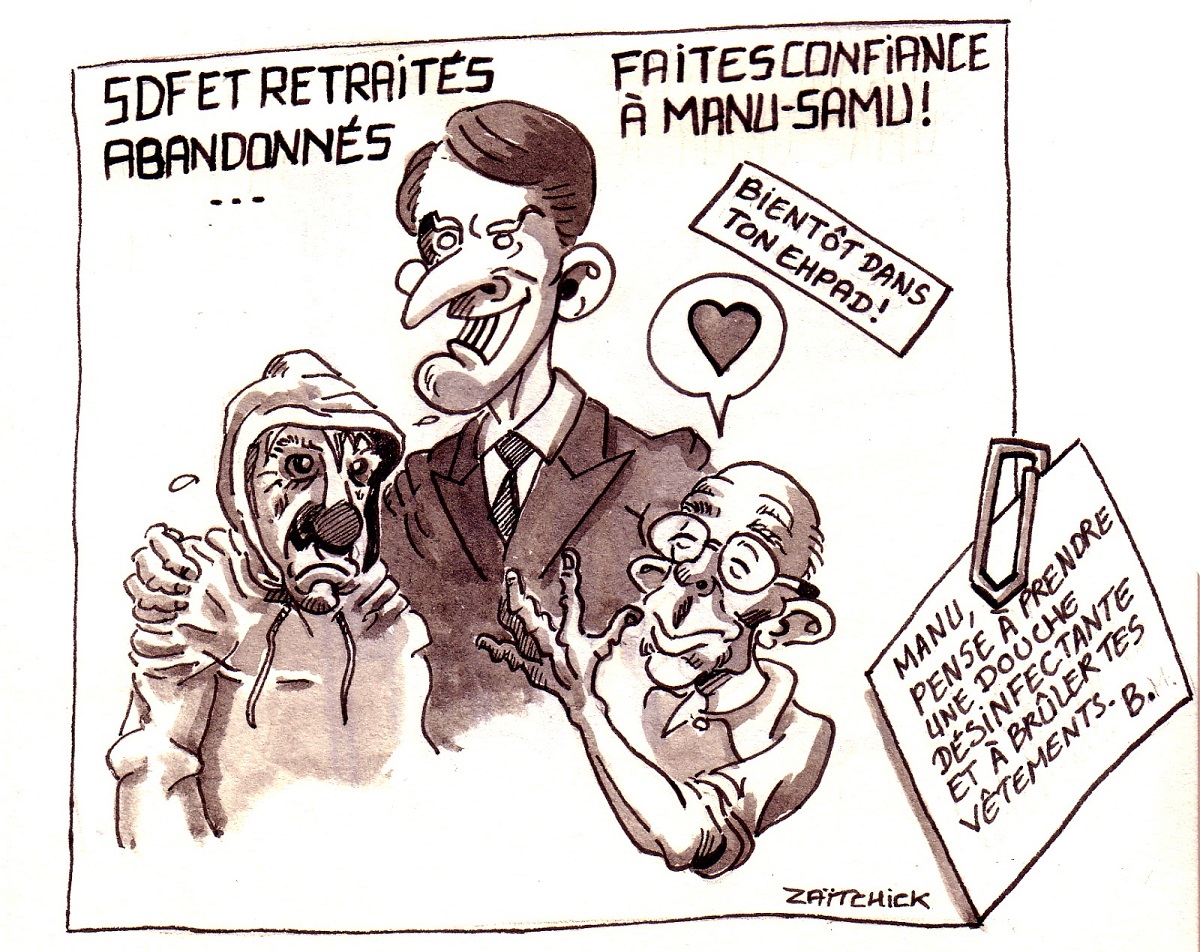 SDF ET RETRAiTÉS
ABANDONNÉS
...
FAiTES CONFiANCE
À MANU-SAMU!
BiENTÔT DANS
TON EHPAD!
MANU,
PENSE À PRENDRE
UNE DOUCHE
DÉSiNFECTANTE
ET À BRÛLER TES
VÊTEMENTS. B.
ZAÏTCHiCK